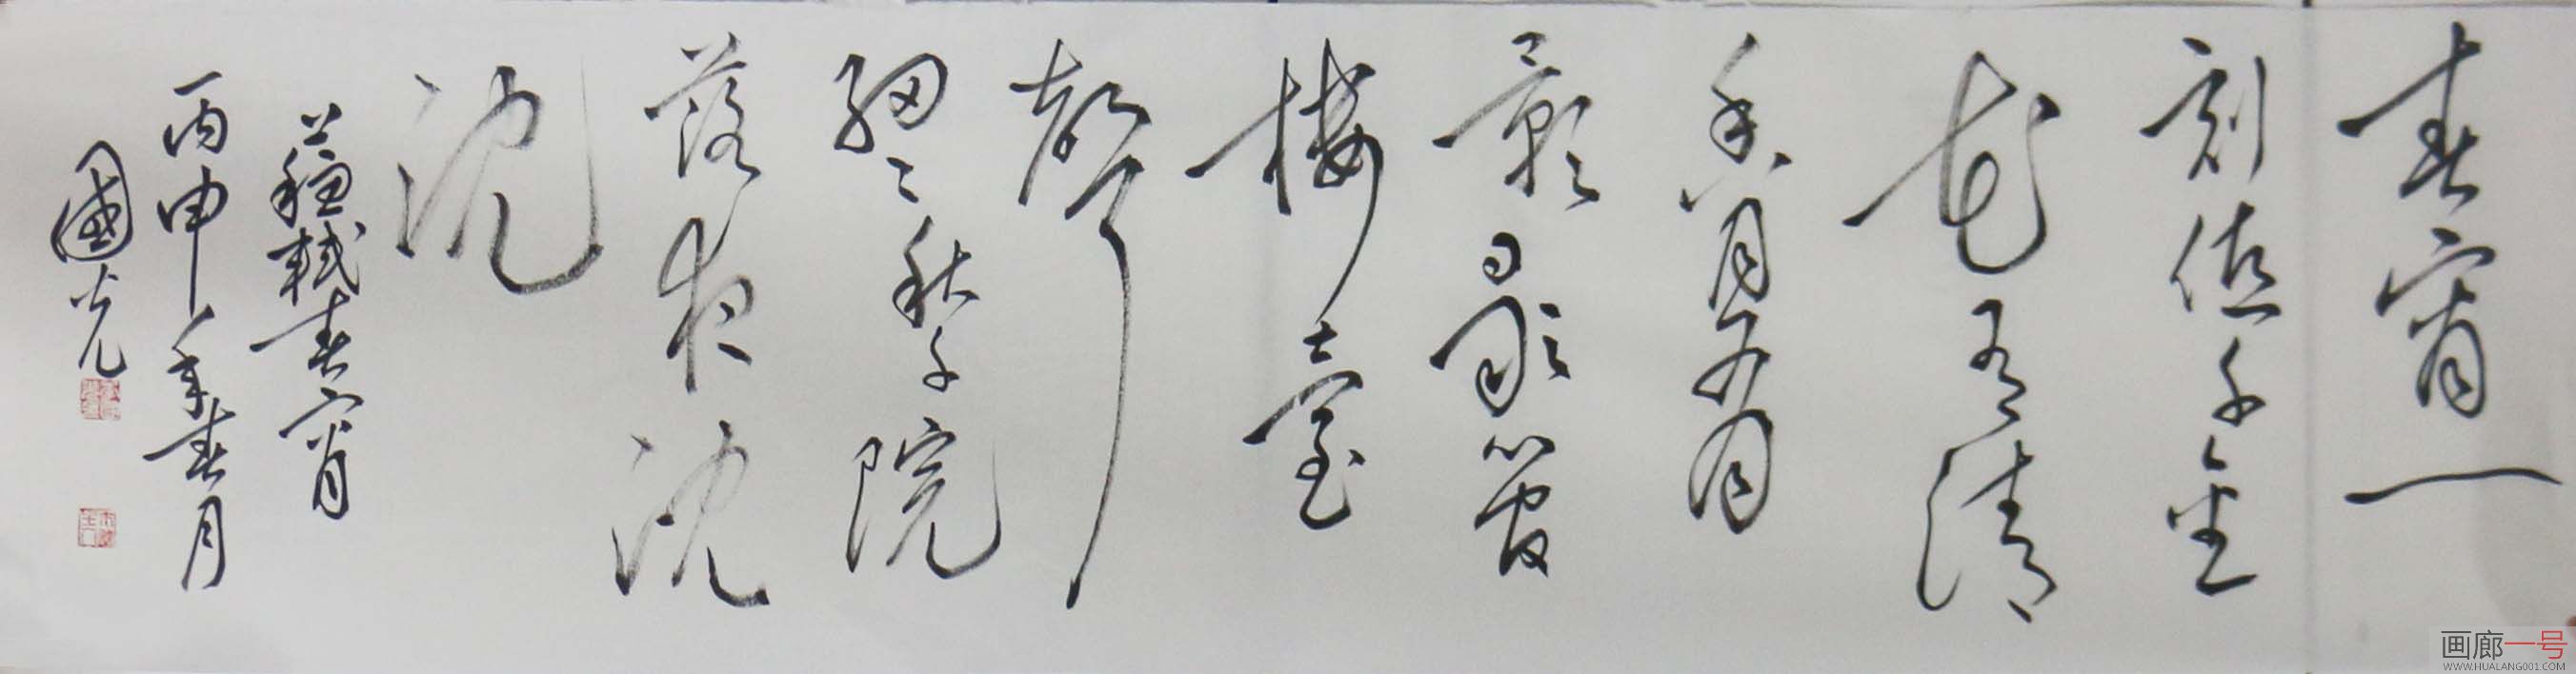 春宵一
刻值千金
花有清
香月有
影歌管
樓臺
聲
細〻秋千院
落夜沈
沈
蘇軾春宵
丙申年春月
國光
画廊一号
WWW.HUALANG001.COM